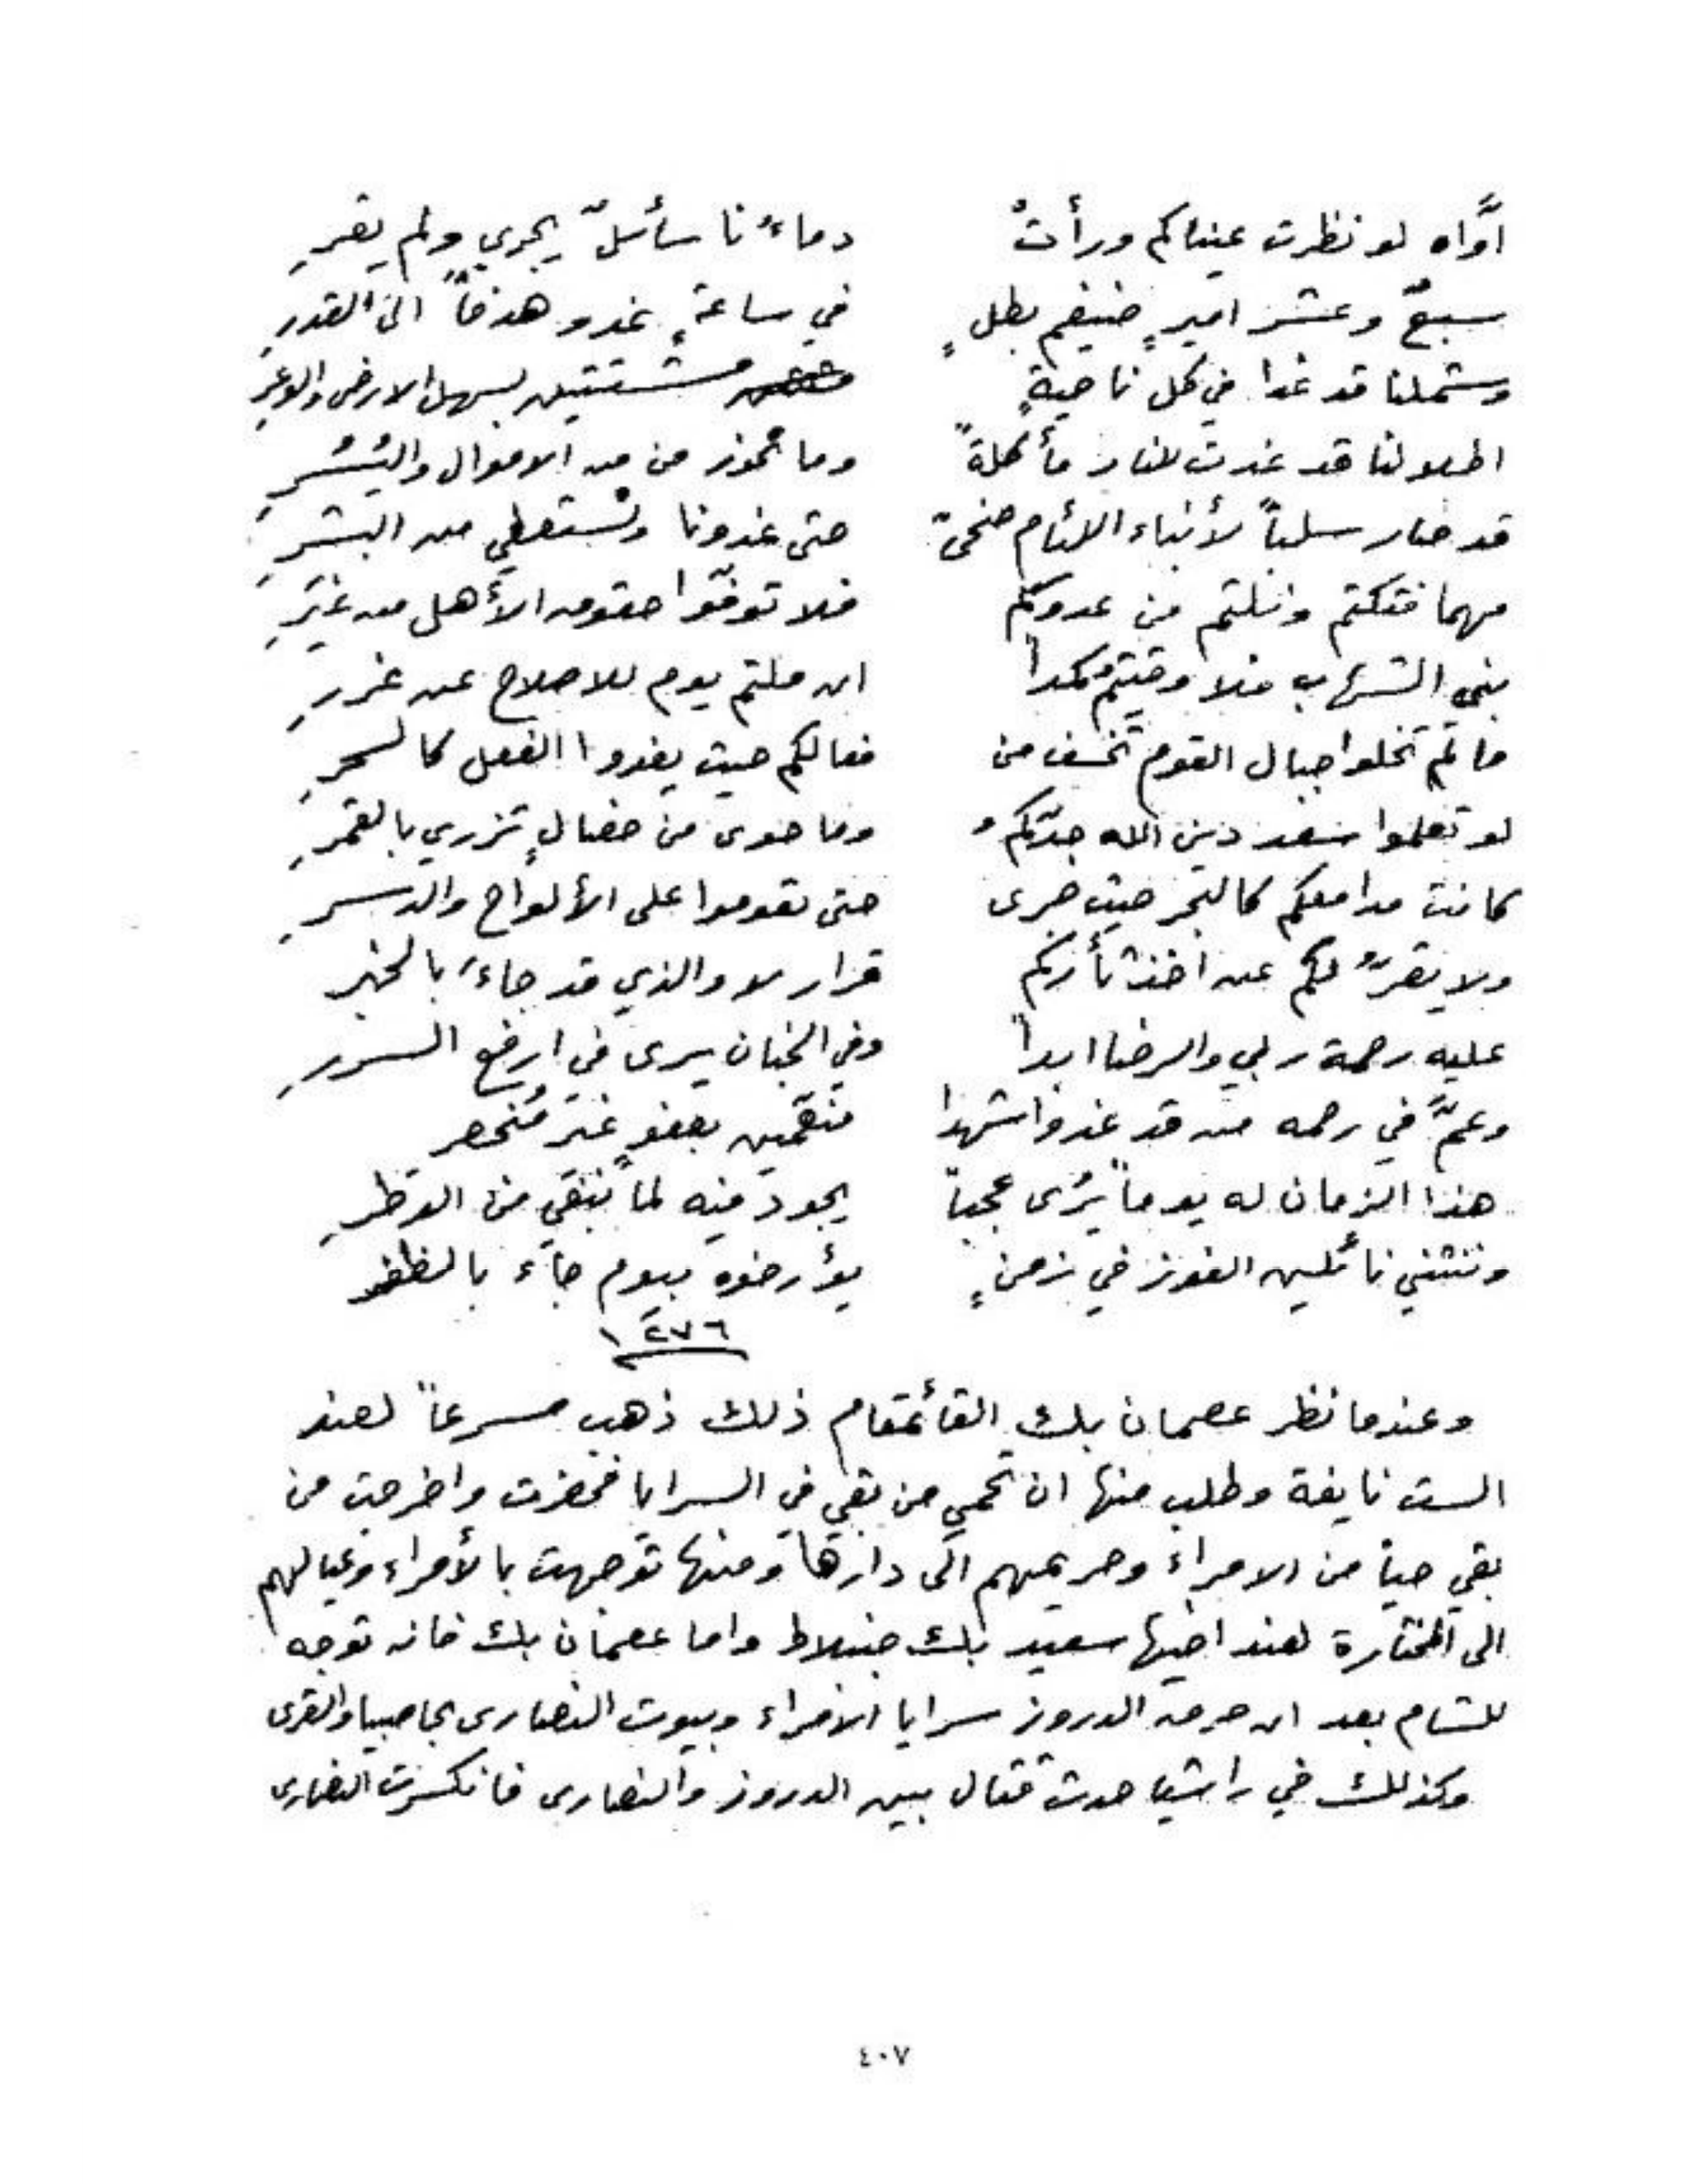 اوَّاه لو نظرت عيناكم ورأت دماءُنا سائلٌ يجري ولم يقرِ
سبعٌ وعشر اميرٍ ضيغم بطلٍ في ساعةٍ غدو هدفاً الى القدرِ
وشملنا قد غدا في كل ناحيةٍ مشتتين بسهل الارض والوعرِ
اطلالنا قد غدت للنار مأكلةً وما نحوز من الاموال واليُسُرِ
قد صار سلباً لأبناء اللئام ضحىً حتى غدونا ونستعطي من البشرِ
مهما فتكتم ونلتم من عدوكم فلا توفّوا حقوق الأهل من غيَرِ
بني الشهاب فلا وقيتم كمداً ان ملتم يوم للاصلاح عن غررِ
ما لم تخلوا جبال القوم تخسف من فعالكم حيث يغدوا الفعل كالسحرِ
لو تعلموا سعد دين الله جدّكمُ وما حوى من خصالٍ تزري بالقمرِ
كانت مدامعكم كالبحر حيث جرى حتى تعوموا على الألواح والدسرِ
ولا يقرُّ لكم عن اخذ ثأركم قرار لا والذي قد جاءَ بالخبر
عليه رحمة ربي والرضا ابداً وفي الجنان يرى في ارفع السررِ
وعمَّ في رحمه من قد غدوا شهدا منعّمين بعفوٍ غيَر مُنحصر
هذا الزمان له يوماً يُرى عجباً يجود فيه لما نبتغي من الوطرِ
وننثني نائلين الفوز في زمنٍ يؤرخوه بيوم جاء بالظفر
١٢٧٦
وعندما نظر عصمان بك القائمقام ذلك ذهب مسرعاً لعند
الست نايفة وطلب منها ان تحمي من بقي في السرايا فحضرت واخرجت من
بقي حياً من الامراء وحريمهم الى دارها ومنها توجهت بالأمراء وعيالهم
الى المختارة لعند اخيها سعيد بك جنبلاط واما عصمان بك فانه توجه
للشام بعد ان حرق الدروز سرايا الامراء وبيوت النصارى بحاصبيا والقرى
وكذلك في راشيا حدث قتال بين الدروز والنصارى فانكسرت النصارى
٤٠٧